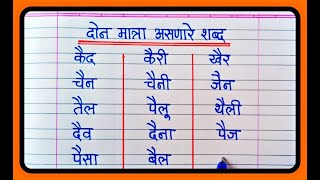 दोन मात्रा असणारे शब्द
कैद कैरी खैर
चैन चैनी जैन
तैल पैलू थैली
दैव दैना पैज
पैसा बैल